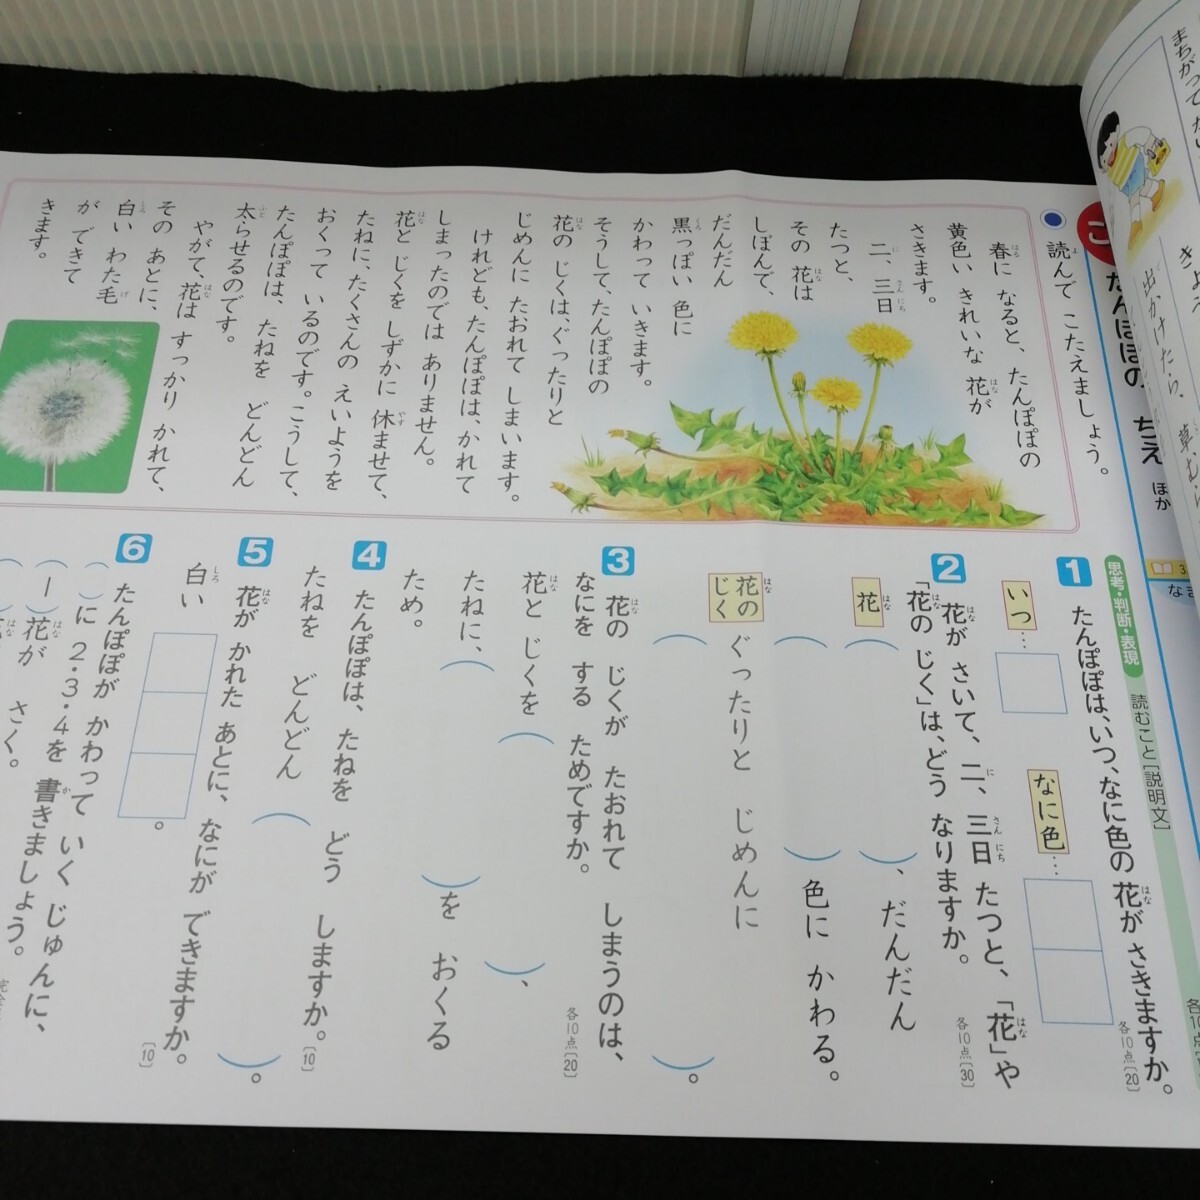 まちがって
出かけたら、
たんぽぽの ちえ ほか
読んで こたえましょう。
春に なると、たんぽぽの
黄色い きれいな 花が
さきます。
二、三日
たつと、
その 花は
しぼんで、
だんだん
黒っぽい 色に
かわって いきます。
そうして、たんぽぽの
花の じくは、ぐったりと
じめんに たおれて しまいます。
けれども、たんぽぽは、かれて
しまったのでは ありません。
花と じくを しずかに 休ませて、
たねに、たくさんの えいようを
おくって いるのです。こうして、
たんぽぽは、 たねを どんどん
太らせるのです。
やがて、花は すっかり かれて、
その あとに、
白い わた毛
が できて
きます。
思考・判断・表現
読むこと[説明文]
1 たんぽぽは、いつ、なに色の 花が さきますか。
各10点[20]
いつ…
なに色…
2 花が さいて、二、三日 たつと、「花」や
「花の じく」は、どう なりますか。
各10点[30]
花
( )、だんだん
( )色に かわる。
花の じく
ぐったりと じめんに
( )。
3 花の じくが たおれて しまうのは、
なにを する ためですか。
各10点[20]
花と じくを ( )、
たねに、( )を おくる
ため。
4 たんぽぽは、たねを どう しますか。
[10]
たねを どんどん ( )。
5 花が かれた あとに、なにが できますか。
[10]
白い 。
6 たんぽぽが かわって いく じゅんに、
( )に 2・3・4を 書きましょう。
(1)花が さく。